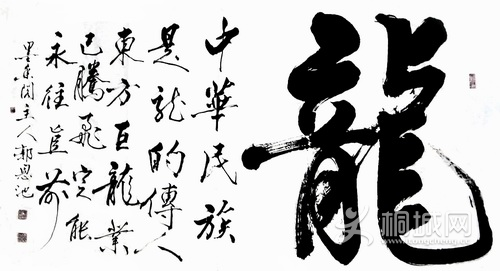 龍
中華民族
是龍的傳人
東方巨龍業
已騰飛定能
永往直前
墨东阁主人郝恩池
桐城网